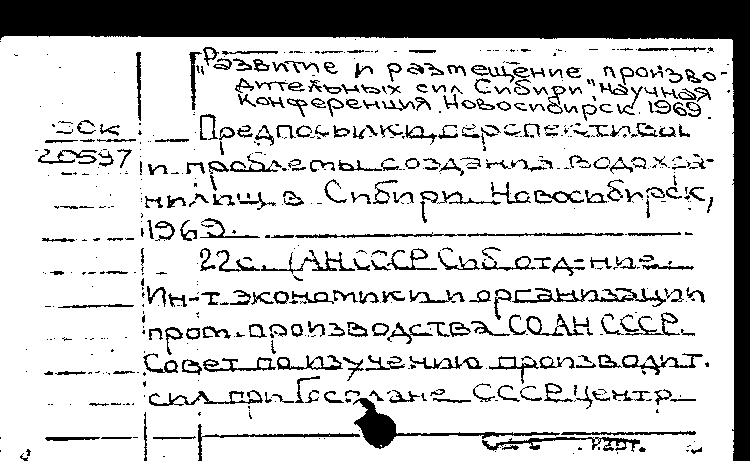 "Развитие и размещение произво-
дительных сил Сибири", научная
конференция. Новосибирск. 1969.
Предпосылки, перспективы
20597
и проблемы создания водохра-
нилищ в Сибири. Новосибирск,
1969.
22с. (АН СССР. Сиб. отд-ние.
Ин-т экономики и организации
пром. производства СО АН СССР.
Совет по изучению производит.
сил при Госплане СССР. Центр.